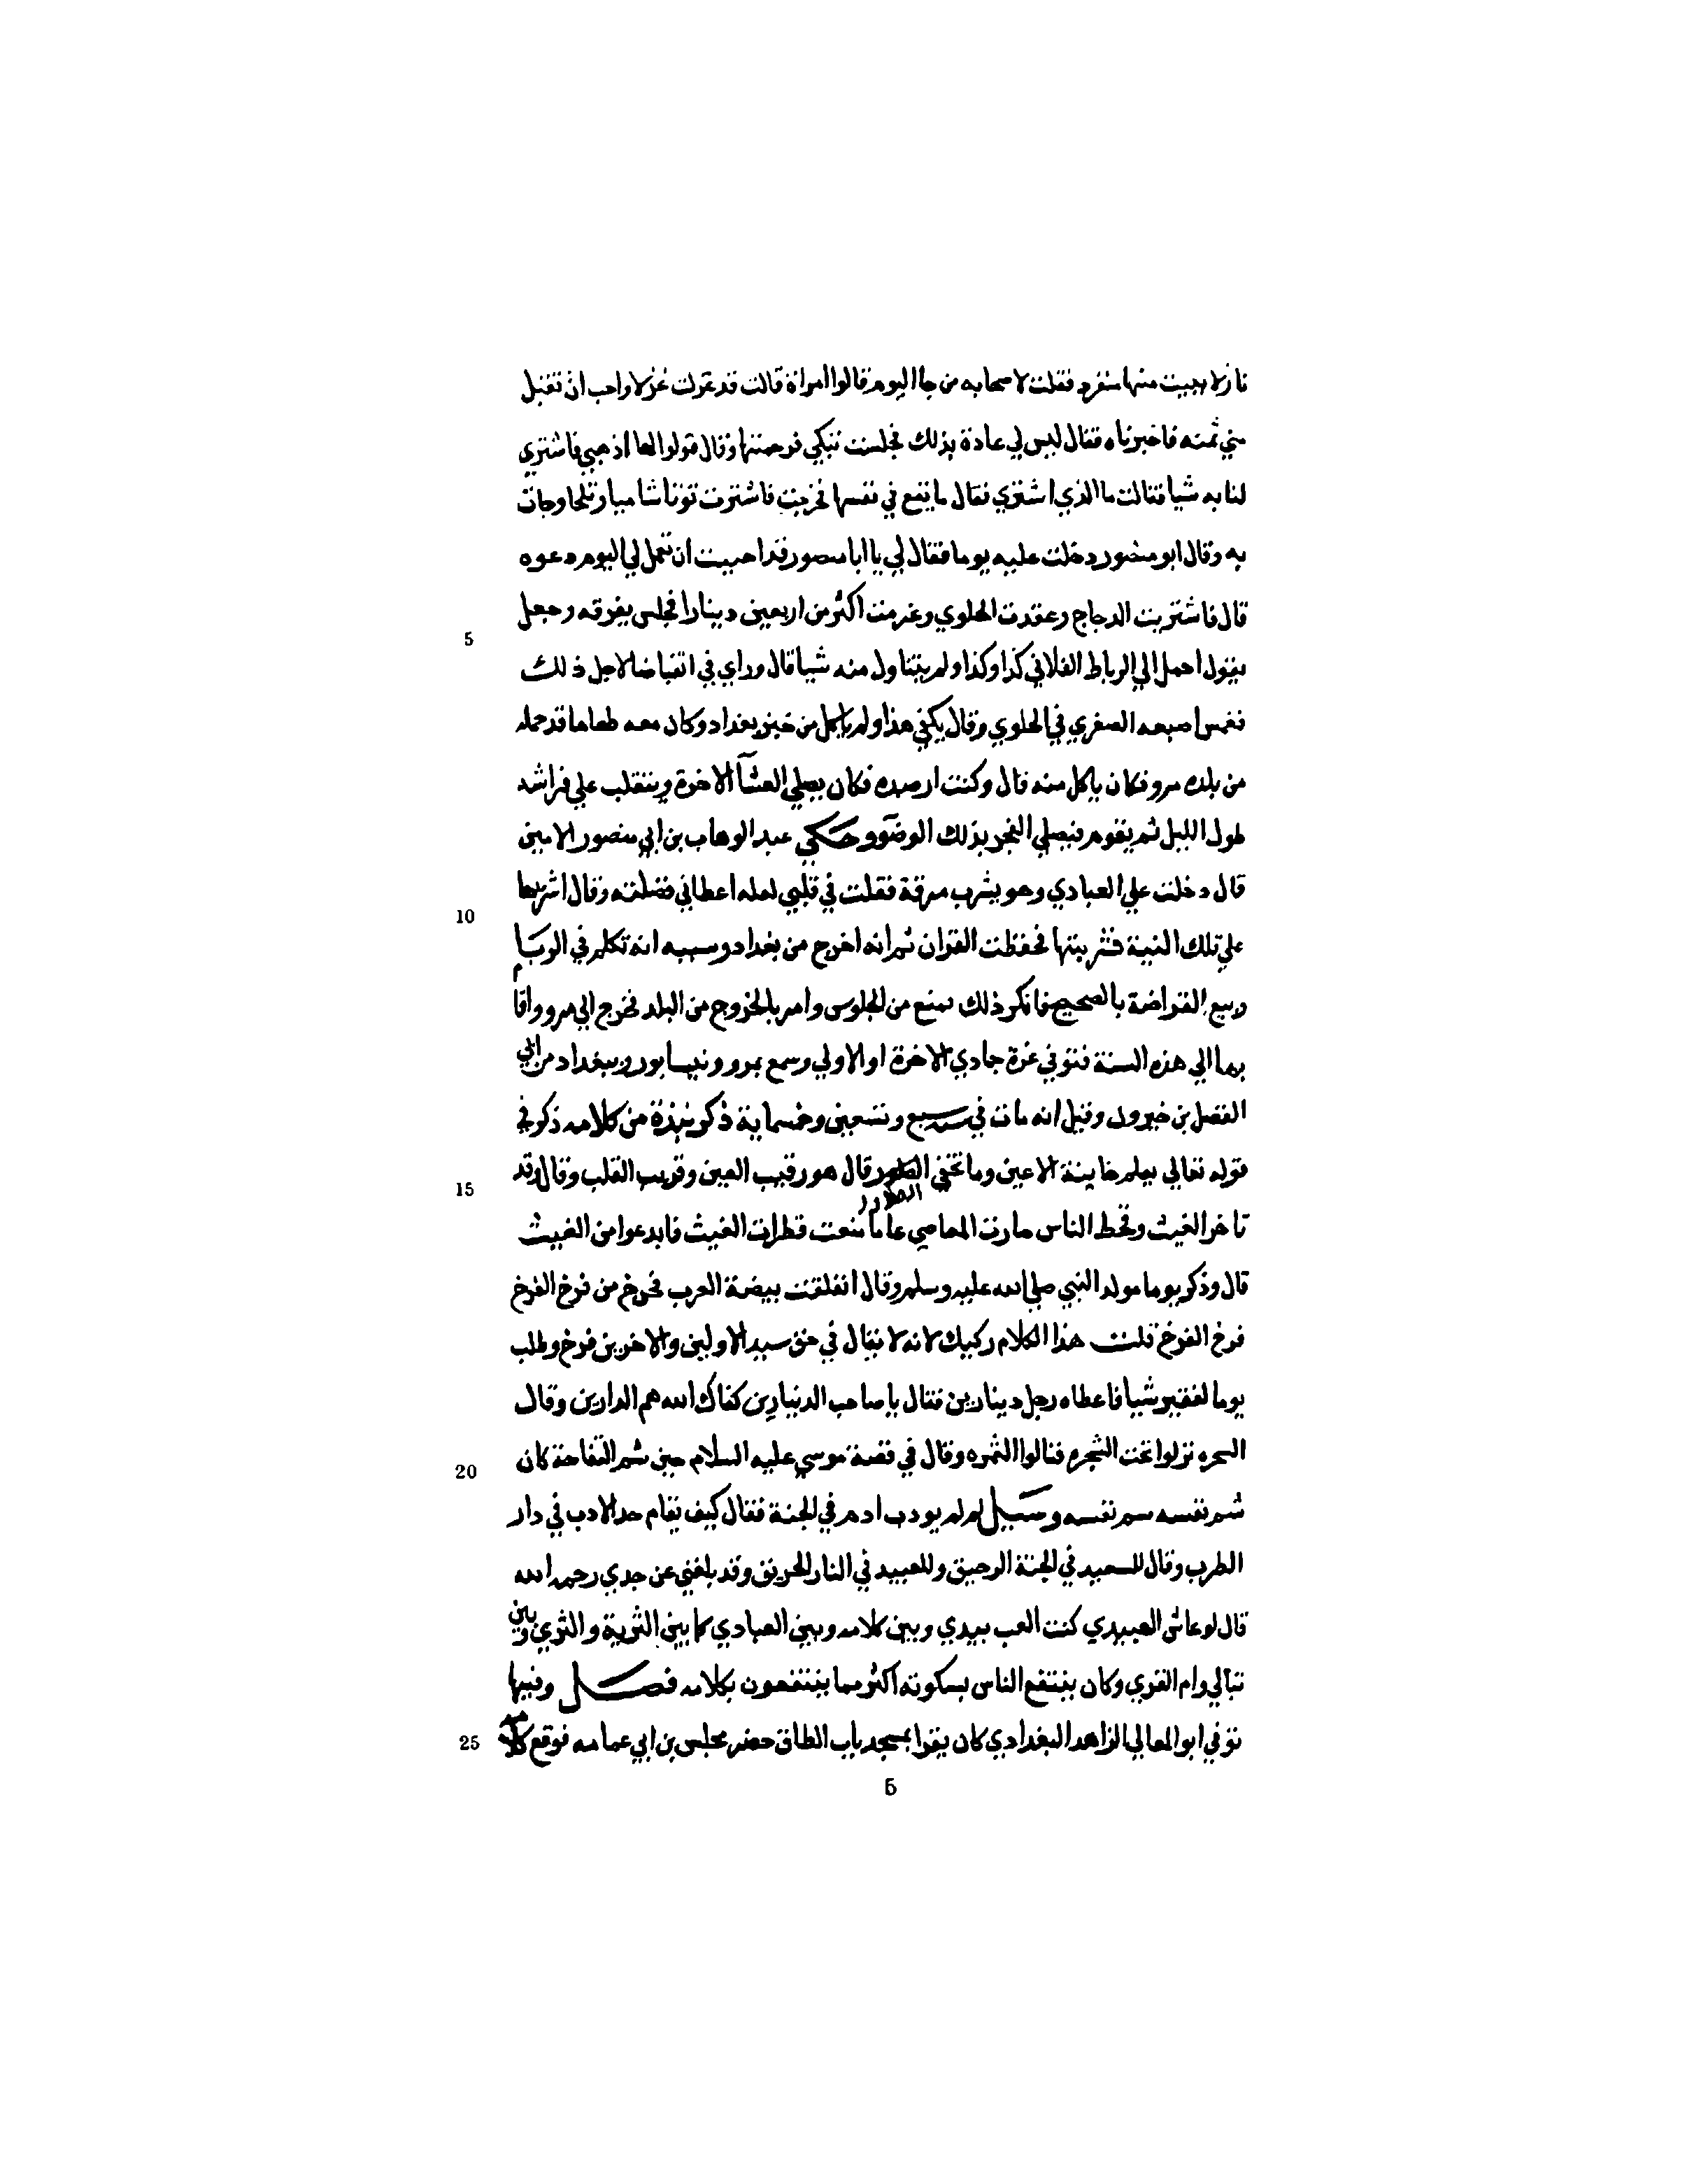 نازلا ببيت منها منفرد فقلت لاصحابه من جا اليوم قالوا امراة قالت قد غزلت غزلا واحب ان تقبل
مني ثمنه فاخبرناه فقال ليس لي عادة بذلك فجلست تبكي فرحمتها وقال قولوا لها اذهبي فاشتري
لنا به شيا فقالت ما الذي اشتري فقال ما يقع في نفسها فخرجت فاشترت توتا شاميا وثلجا وجات
به وقال ابو منصور دخلت عليه يوما فقال لي يا ابا منصور قد احببت ان تعمل لي اليوم دعوه
قال فاشتريت الدجاج وعقدت الحلوي وغرمت اكثر من اربعين دينارا فجلس يفرقه وجعل
5
يقول احمل الي الرباط الفلاني كذا وكذا ولم يتناول منه شيا قال وراي في انقباضا لاجل ذلك
فغمس اصبعه الصغري في الحلوي وقال يكفي هذا ولم ياكل من خبز بغداد وكان معه طعاما قد حمله
من بلده مرو فكان ياكل منه قال وكنت ارصده فكان يصلي العشآ الاخرة ويتقلب علي فراشه
طول الليل ثم يقوم فيصلي الفجر بذلك الوضوء وحكي عبد الوهاب بن ابي منصور الامين
قال دخلت علي العبادي وهو يشرب مرقة فقلت في قلبي لعله اعطاني فضلته وقال اشربها
10
علي تلك النية فشربتها فحفظت القران ثم انه اخرج من بغداد وسببه انه تكلم في الربا
وبيع القراضة بالصحيح فانكر ذلك فمنع من الجلوس وامر بالخروج من البلد فخرج الي مرو واقام
بها الي هذه السنة فتوفي غرة جمادي الاخرة او الاولي وسمع بمرو ونيسابور وببغداد من ابي
الفضل بن خيرون وقيل انه مات في سنه سبع وتسعين وخمساية ذكر نبذة من كلامه ذكر في
قوله تعالي يعلم خاينة الاعين وما تخفي الصدور قال هو رقيب العين وقريب القلب وقال وقد
15
الصدور
تاخر الغيث وقحط الناس صارت المعاصي عاما منعت قطرات الغيث فابدعوا من الغيث
قال وذكر يوما مولد النبي صلي الله عليه وسلم وقال انفلقت بيضة العرب فخرج من فرخ الفرخ
فرخ الفرخ قلت هذا الكلام ركيك لانه لا يقال في حق سيد الاولين والاخرين فرخ وطلب
يوما لفقير شيا فاعطاه رجل دينارين فقال يا صاحب الدينارين كفاك الله هم الدارين وقال
السحره نزلوا تحت الشجره فنالوا الثمره وقال في قصة موسي عليه السلام حين شم التفاحة كان
20
شم نفسه سم نفسه وسيل لم لم يودب ادم في الجنة فقال كيف يقام حد الادب في دار
الطرب وقال للسعيد في الجنة الرحيق وللعبيد في النار الحريق وقد بلغني عن جدي رحمه الله
قال لو عاش العبيدي كنت العب بيدي وبين كلامه وبين العبادي كما بين الثرية والثري وبين
تبالي وام القري وكان ينتفع الناس بسكوته اكثر مما ينتفعون بكلامه فصل وفيها
توفي ابو المعالي الزاهد البغدادي كان يقرا بمسجد باب الطاق حضر مجلس بن ابي عمامه فوقع كلامه
25
5